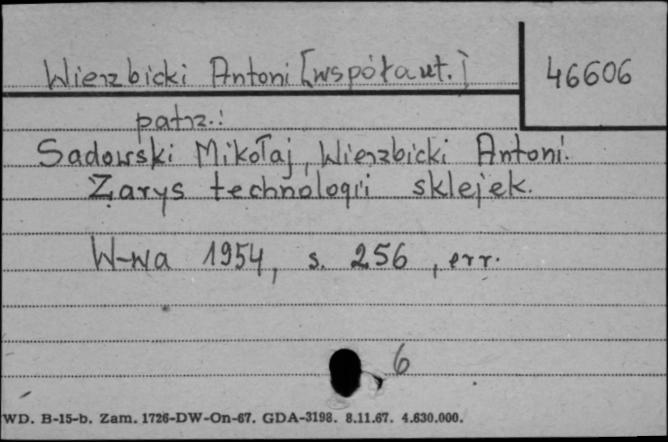 Wierzbicki Antoni [współaut.]
46606
patrz.:
Sadowski Mikołaj, Wierzbicki Antoni.
Zarys technologii sklejek.
W-wa 1954, s. 256, err.
6
WD. B-15-b. Zam. 1726-DW-On-67. GDA-3198. 8.11.67. 4.630.000.